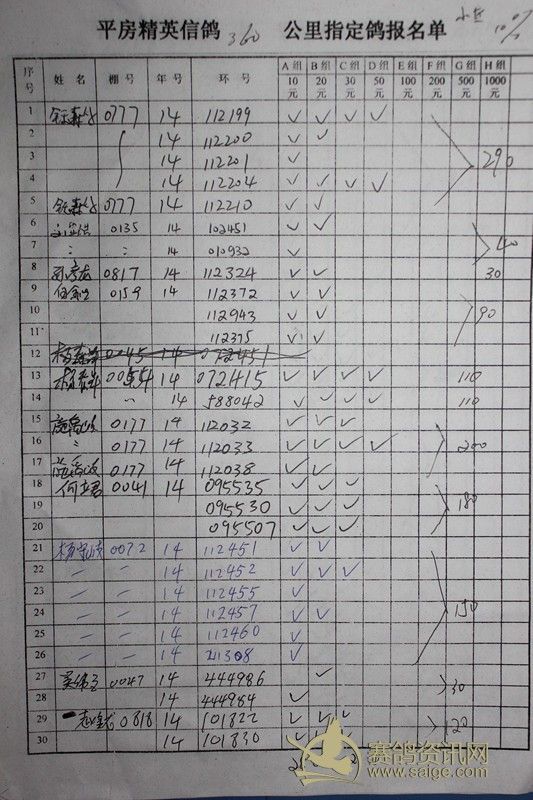 平房精英信鸽 360 公里指定鸽报名单
10%
序号 姓名 棚号 年号 环号 A组10元 B组20元 C组30元 D组50元 E组100元 F组200元 G组500元 H组1000元
1 0777 14 112199 ✓ ✓ ✓ ✓
2 14 112200 ✓ ✓
3 14 112201 ✓ 290
4 14 112204 ✓ ✓ ✓ ✓
5 0777 14 112210 ✓ ✓
6 0135 14 102451 ✓ ✓
7 14 010932 ✓ 40
8 0817 14 112324 ✓ ✓ 30
9 0159 14 112372 ✓ ✓
10 112943 ✓ ✓ 90
11 112375 ✓ ✓
12 0045 14 072451
13 0054 14 072415 ✓ ✓ ✓ ✓ 110
14 14 588042 ✓ ✓ ✓ ✓ 110
15 0177 14 112032 ✓ ✓ ✓
16 0177 14 112033 ✓ ✓ ✓ ✓ 200
17 0177 14 112038 ✓ ✓
18 0041 14 095535 ✓ ✓ ✓
19 095530 ✓ ✓ ✓ 180
20 095507 ✓ ✓ ✓
21 0072 14 112451 ✓ ✓
22 14 112452 ✓ ✓ ✓
23 14 112455 ✓
24 14 112457 ✓ ✓ 150
25 14 112460 ✓
26 14 211308 ✓
27 0047 14 444986 ✓
28 14 444984 ✓ 30
29 0818 14 101822 ✓ ✓ ✓
30 14 101830 ✓ ✓ 120
赛鸽资讯网
www.saige.com